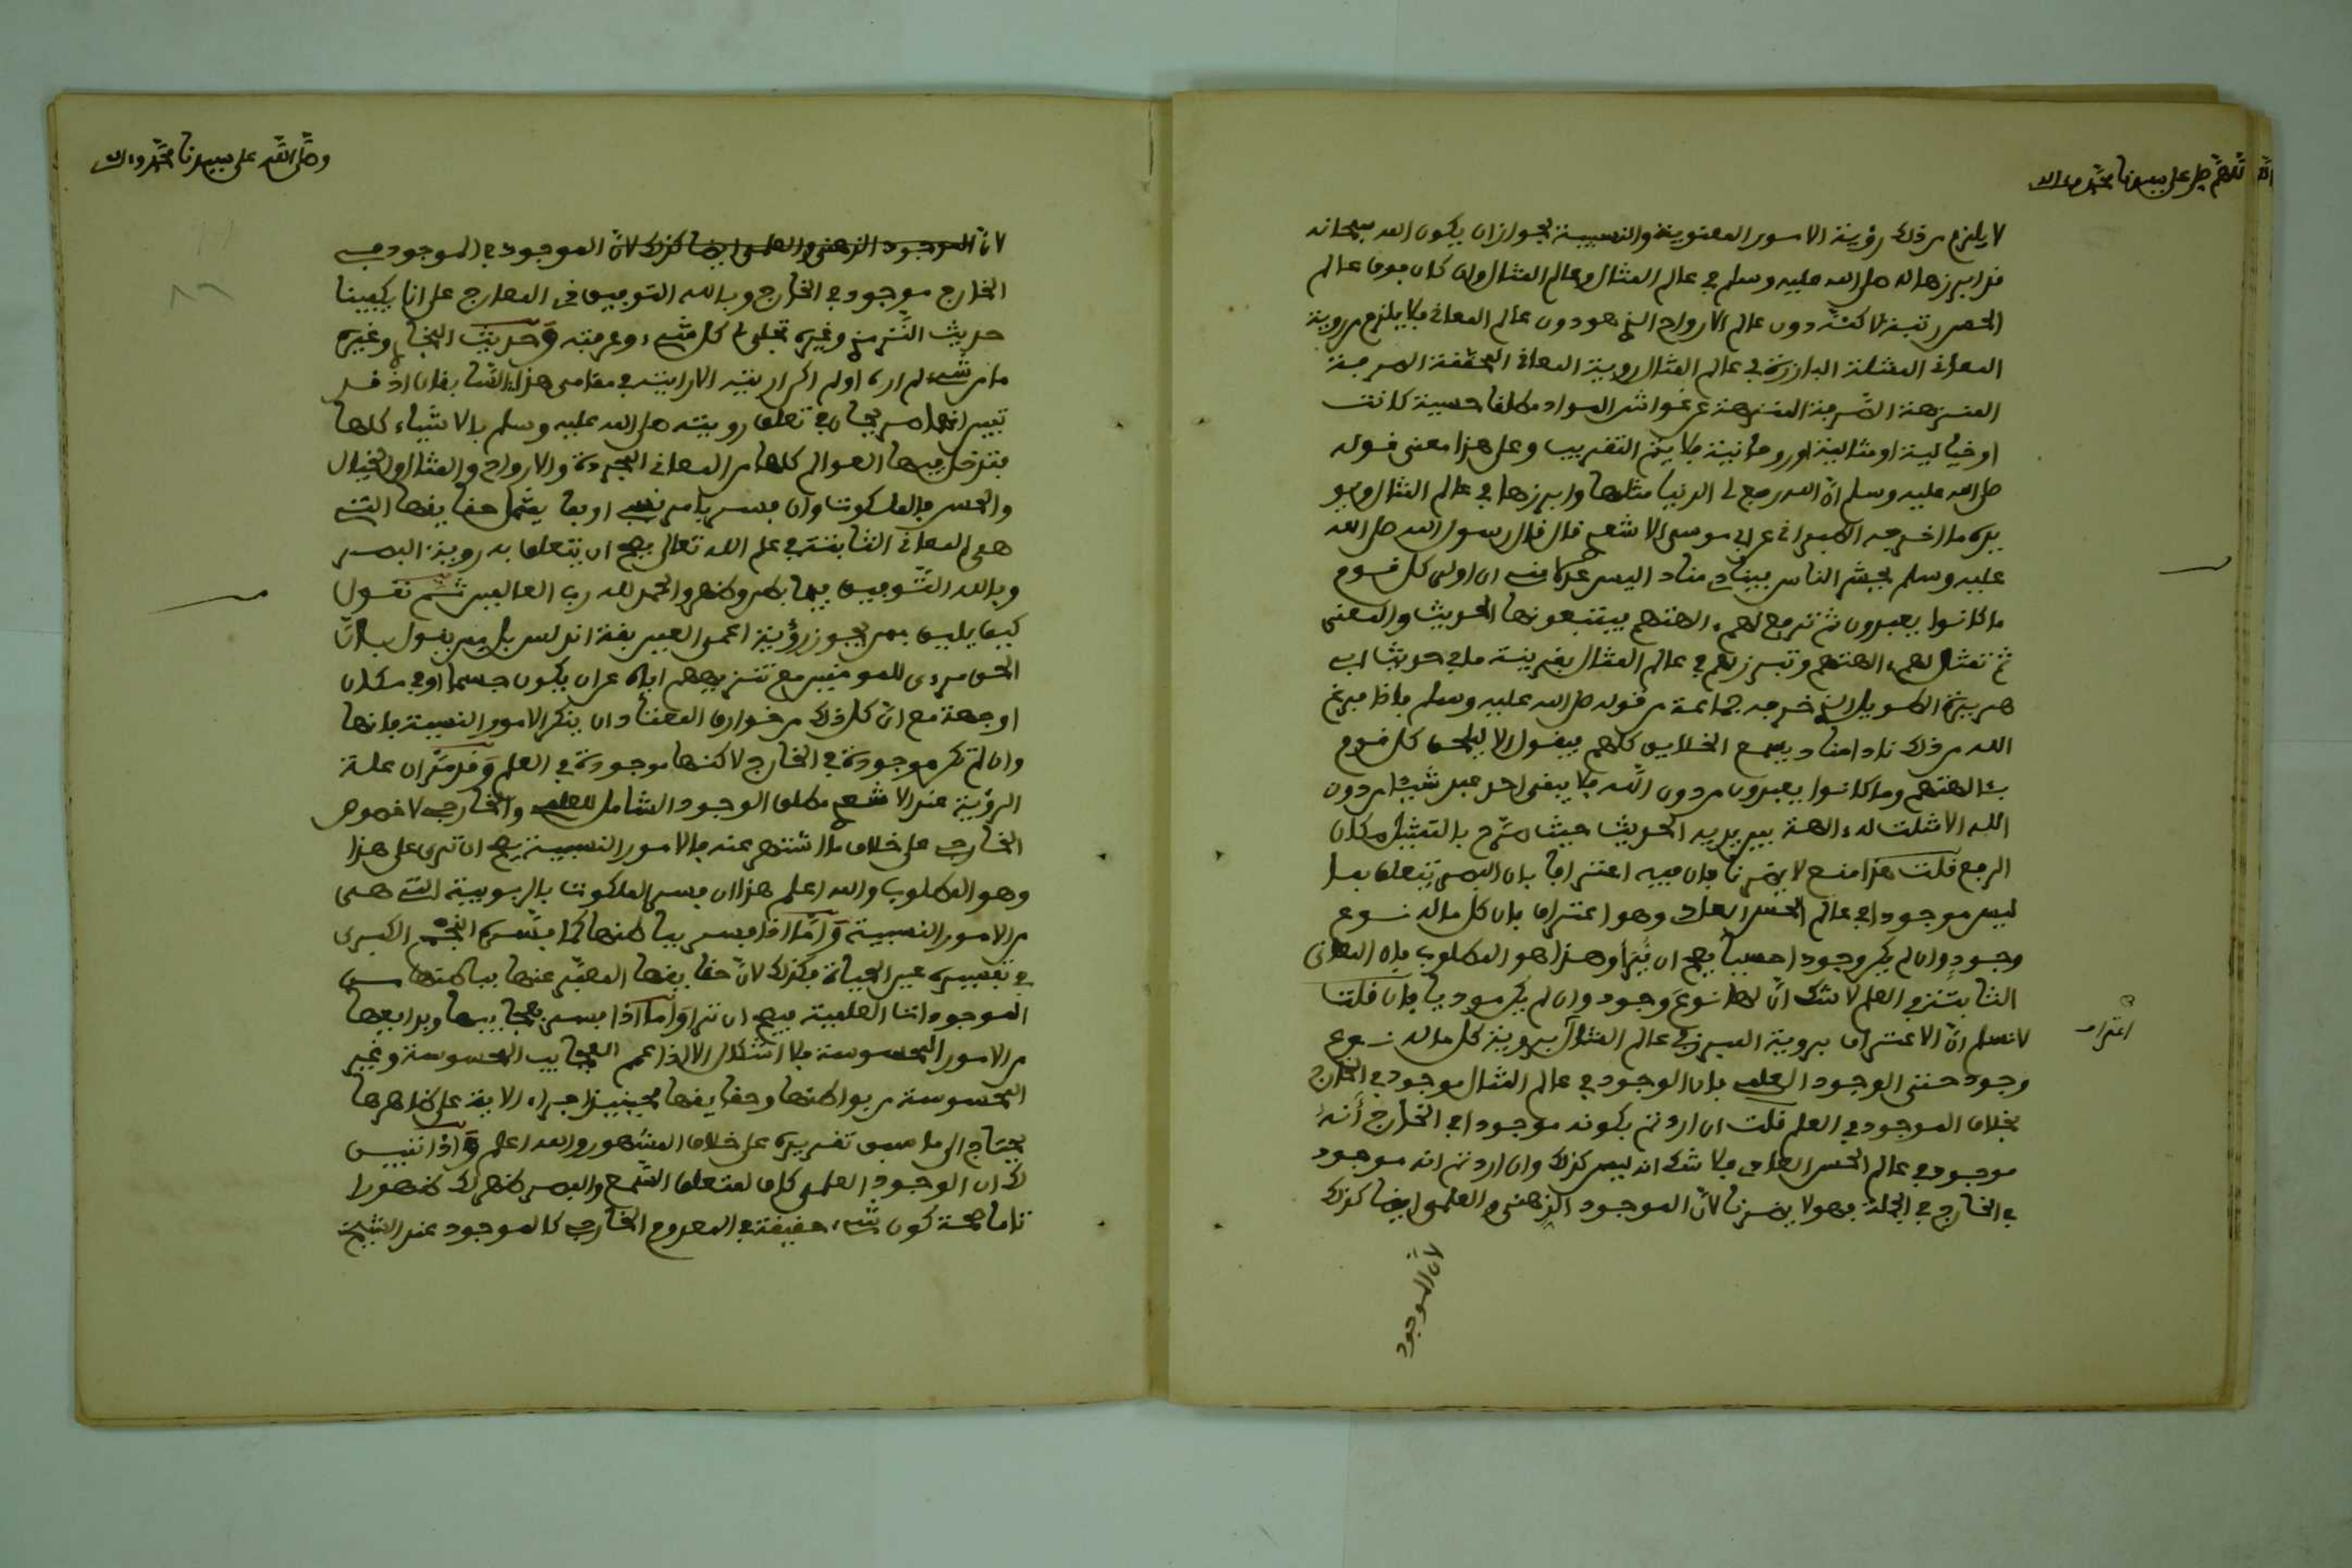 اللهم صل على سيدنا محمد وءاله
لا يلزم من ذلك رؤية الامور المعنوية والنسبية لجواز ان يكون الله سبحانه
قد ابرزها له صلى الله عليه وسلم في عالم المثال وعالم المثال وان كان فوق عالم
الحس رتبة لاكنه دون عالم الارواح الذي هو دون عالم المعاني فلا يلزم من روية
المعاني الممثلة البارزة في عالم المثال روية المعاني المحققة الصرفة
المنزهة عن غواشي المواد مطلقا حسية كانت
او خيالية او مثالية او روحانية فلا يتم التقريب وعلى هذا معنى قوله
صلى الله عليه وسلم ان الله رفع لي الدنيا مثلها وابرزها في عالم المثال ويو
يده ما اخرجه الطبراني عن ابي موسى الاشعري قال قال رسول الله صلى الله
عليه وسلم يحشر الناس فينادي مناد اليس عدلا مني ان اولي كل قوم
ما كانوا يعبدون ثم ترفع لهم ءالهتهم فيتبعونها الحديث والمعنى
ثم تمثل لهم ءالهتهم وتبرز لهم في عالم المثال بقرينة ما في حديث ابي
هريرة الطويل الذي خرجه جماعة من قوله صلى الله عليه وسلم فاذا فرغ
الله من ذلك نادا مناد يسمع الخلايق كلهم فيقول الا ليلحق كل قوم
بئالهتهم وما كانوا يعبدون من دون الله فلا يبقى احد عبد شيئا من دون
الله الا مثلت له ءالهة بين يديه الحديث حيث صرح بالتمثيل مكان
الرفع قلت هذا منع لا يضرنا فان فيه اعترافا بان البصر يتعلق بما
ليس موجودا في عالم الحس العادي وهو اعتراف بان كل ما له نوع
وجود وان لم يكن وجودا حسيا يصح ان يرا وهذا هو المطلوب فان المعاني
الثابتة في العلم لا شك ان لها نوع وجود وان لم يكن موديا فان قلت
لا نسلم ان الاعتراف بروية المبرز في عالم المثال بروية كل ما له نوع
اعتراف
وجود حتى الوجود العلمي فان الوجود في عالم المثال موجود في الخارج
بخلاف الموجود في العلم قلت ان اردتم بكونه موجودا في الخارج انه
موجود في عالم الحس العادي فلا شك انه ليس كذلك وان اردتم انه موجود
في الخارج في الجملة فهو لا يضرنا لان الموجود الذهني والعلمي ايضا كذلك
لان الموجود
وصلى الله على سيدنا محمد وءاله
لان الموجود الذهني والعلمي ايضا كذلك لان الموجود في الموجود في
الخارج موجود في الخارج وبالله التوفيق في المعارج على انا يكفينا
حديث الترمذي وغيره تجلى لي كل شيء وعرفته وحديث البخاري وغيره
ما من شيء لم اره او لم اكن اريته الا رايته في مقامي هذا فان اذ قد
تبين انها صريحان في تعلق رويته صلى الله عليه وسلم بالاشياء كلها
فتدخل فيها العوالم كلها من المعاني المجردة والارواح والمثال والخيال
والحس فالملكوت وان فسر بامر نسبي او بما يشمل حقايقها التي
هي المعاني الثابتة في علم الله تعالى يصح ان يتعلق به روية البصر
وبالله التوفيق فيما بطن وظهر والحمد لله رب العالمين ثم نقول
كيف يليق بمن يجوز رؤية اعمى الصين بقة اندلس بل من يقول بان
الحق مرءى للمومنين مع تنزيههم اياه عن ان يكون جسما او في مكان
او جهة مع ان كل ذلك من خوارق المعتاد ان ينكر الامور النسبية فانها
وان لم تكن موجودة في الخارج لاكنها موجودة في العلم وقد مر ان علة
الرؤية عند الاشعري مطلق الوجود الشامل للعلمي والخارجي لا خصوص
الخارجي على خلاف ما اشتهر عنه فالامور النسبية يصح ان ترى على هذا
وهو المطلوب والله اعلم هذا ان فسر الملكوت بالربوبية التي هي
من الامور النسبية واما اذا فسر بباطنها كما فسره النجم الكبرى
في تفسيره عين الحياة فكذلك لان حقايقها المعبر عنها بباطنها من
الموجودات العلمية فيصح ان ترا واما اذا فسر بعجايبها وبدايعها
من الامور المحسوسة فلا اشكال الا اذا عمم العجايب المحسوسة وغير
المحسوسة من بواطنها وحقايقها فحينيذ اجراء الاية على ظاهرها
يحتاج الى ما سبق تقريره على خلاف المشهور والله اعلم واذا تبين
لك ان الوجود العلمي كاف لمتعلق السمع والبصر ظهر لك ظهورا
تاما صحة كون شيء حقيقة في المعدوم الخارجي كالموجود عند الشيخ